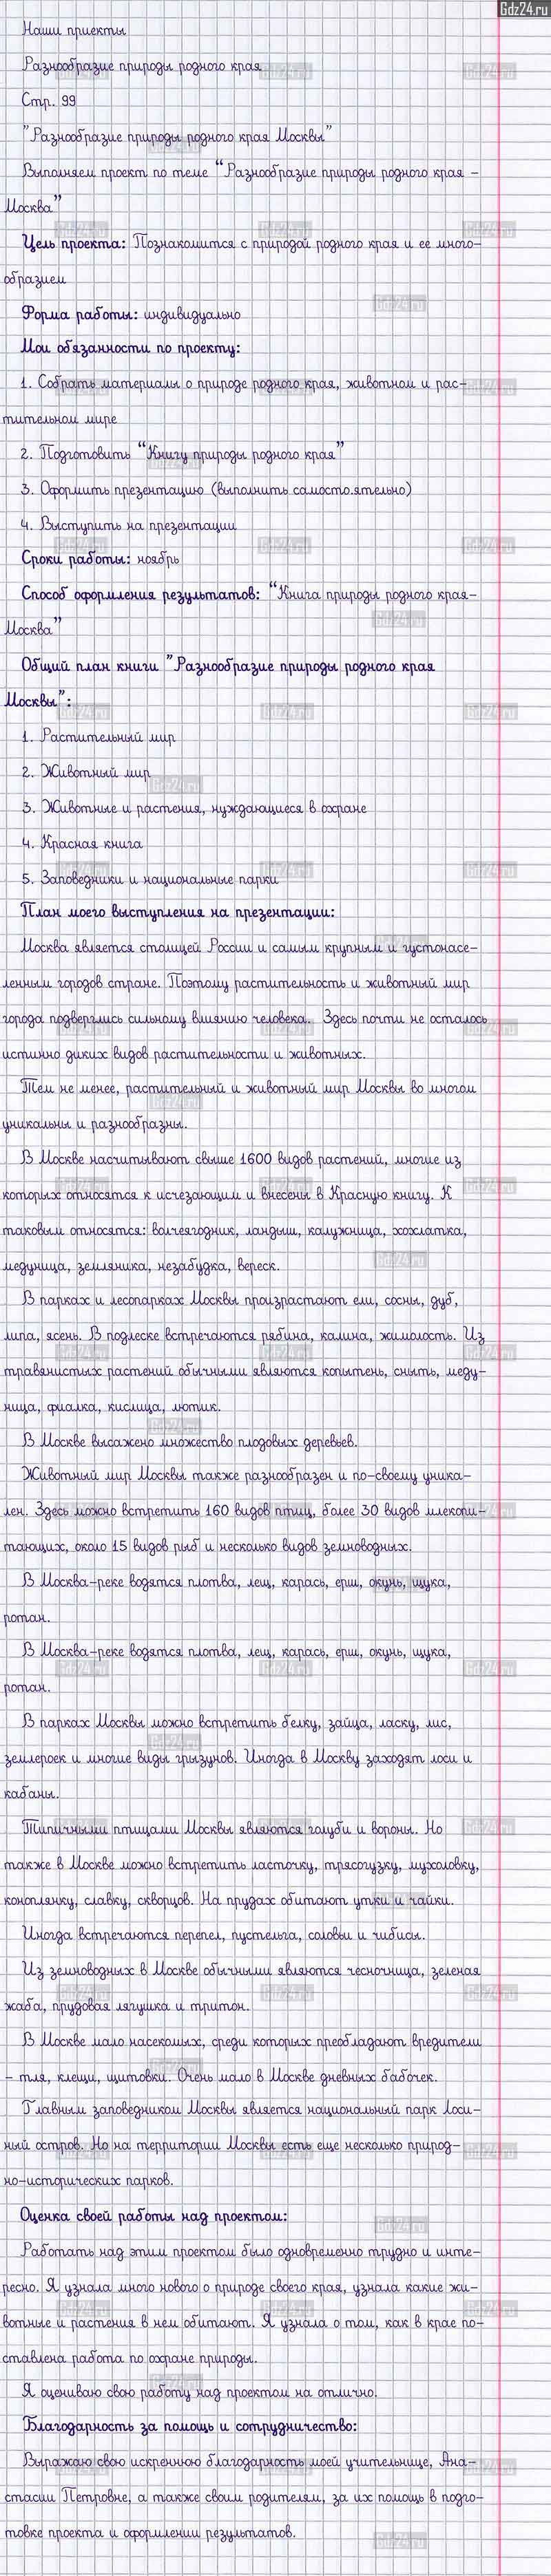 Gdz24.ru
Наши приекты
Разнообразие природы родного края
Стр. 99
"Разнообразие природы родного края Москвы"
Выполняем проект по теме “Разнообразие природы родного края –
Москва”
Цель проекта: Познакомится с природой родного края и ее много-
образием
Форма работы: индивидуально
Мои обязанности по проекту:
1. Собрать материалы о природе родного края, животном и рас-
тительном мире
2. Подготовить “Книгу природы родного края”
3. Оформить презентацию (выполнить самостоятельно)
4. Выступить на презентации
Сроки работы: ноябрь
Способ оформления результатов: “Книга природы родного края-
Москва”
Общий план книги "Разнообразие природы родного края
Москвы":
1. Растительный мир
2. Животный мир
3. Животные и растения, нуждающиеся в охране
4. Красная книга
5. Заповедники и национальные парки
План моего выступления на презентации:
Москва является столицей России и самым крупным и густонасе-
ленным городов стране. Поэтому растительность и животный мир
города подверглись сильному влиянию человека. Здесь почти не осталось
истинно диких видов растительности и животных.
Тем не менее, растительный и животный мир Москвы во многом
уникальны и разнообразны.
В Москве насчитывают свыше 1600 видов растений, многие из
которых относятся к исчезающим и внесены в Красную книгу. К
таковым относятся: волчеягодник, ландыш, калужница, хохлатка,
медуница, земляника, незабудка, вереск.
В парках и лесопарках Москвы произрастают ели, сосны, дуб,
липа, ясень. В подлеске встречаются рябина, калина, жимолость. Из
травянистых растений обычными являются копытень, сныть, меду-
ница, фиалка, кислица, лютик.
В Москве высажено множество плодовых деревьев.
Животный мир Москвы также разнообразен и по-своему уника-
лен. Здесь можно встретить 160 видов птиц, более 30 видов млекопи-
тающих, около 15 видов рыб и несколько видов земноводных.
В Москва-реке водятся плотва, лещ, карась, ерш, окунь, щука,
ротан.
В Москва-реке водятся плотва, лещ, карась, ерш, окунь, щука,
ротан.
В парках Москвы можно встретить белку, зайца, ласку, лис,
землероек и многие виды грызунов. Иногда в Москву заходят лоси и
кабаны.
Типичными птицами Москвы являются голуби и вороны. Но
также в Москве можно встретить ласточку, трясогузку, мухоловку,
коноплянку, славку, скворцов. На прудах обитают утки и чайки.
Иногда встречаются перепел, пустельга, соловьи и чибисы.
Из земноводных в Москве обычными являются чесночница, зеленая
жаба, прудовая лягушка и тритон.
В Москве мало насекомых, среди которых преобладают вредители
– тля, клещи, щитовки. Очень мало в Москве дневных бабочек.
Главным заповедником Москвы является национальный парк Лоси-
ный остров. Но на территории Москвы есть еще несколько природ-
но-исторических парков.
Оценка своей работы над проектом:
Работать над этим проектом было одновременно трудно и инте-
ресно. Я узнала много нового о природе своего края, узнала какие жи-
вотные и растения в нем обитают. Я узнала о том, как в крае по-
ставлена работа по охране природы.
Я оцениваю свою работу над проектом на отлично.
Благодарность за помощь и сотрудничество:
Выражаю свою искреннюю благодарность моей учительнице, Ана-
стасии Петровне, а также своим родителям, за их помощь в подго-
товке проекта и оформлении результатов.